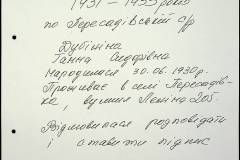 1931 - 1933 років
по Пересадівській с/р
Дубініна
Ганна Сидорівна
Народилася 30.06.1930р.
Проживає в селі Пересадів-
ка, вулиця Леніна 205.
Відмовилася розповідати
і ставити підпис